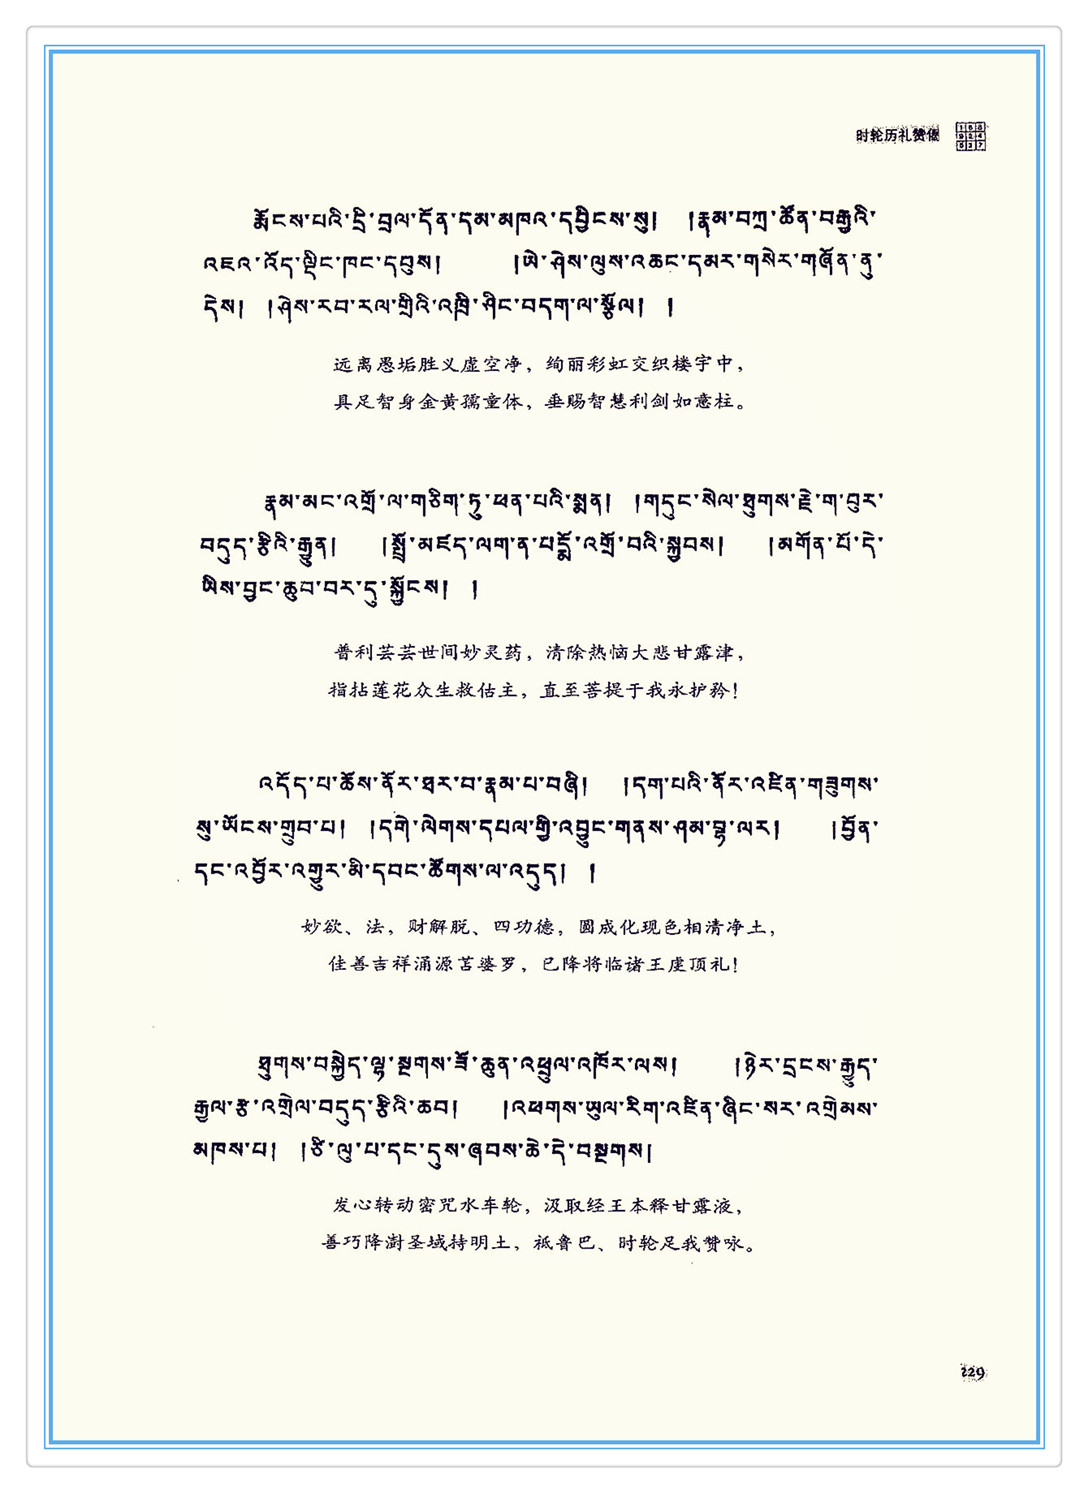 时轮历礼赞偈
རྨོངས་པའི་དྲི་བྲལ་དོན་དམ་མཁའ་དབྱིངས་སུ། །རྣམ་བཀྲ་ཚོན་བརྒྱའི་
འཇའ་འོད་ལྡིང་ཁང་དབུས། །ཡེ་ཤེས་ལུས་འཆང་དམར་གསེར་གཞོན་ནུ་
དེས། །ཤེས་རབ་རལ་གྲིའི་འཁྲི་ཤིང་བདག་ལ་སྩོལ། །
远离愚垢胜义虚空净，绚丽彩虹交织楼宇中，
具足智身金黄孺童体，垂赐智慧利剑如意柱。
རྣམ་མང་འགྲོ་ལ་གཅིག་ཏུ་ཕན་པའི་སྨན། །གདུང་སེལ་ཐུགས་རྗེ་ག་བུར་
བདུད་རྩིའི་རྒྱུན། །སྤྲོ་མཛད་ལག་ན་པདྨོ་འགྲོ་བའི་སྐྱབས། །མགོན་པོ་དེ་
ཡིས་བྱང་ཆུབ་བར་དུ་སྐྱོངས། །
普利芸芸世间妙灵药，清除热恼大悲甘露津，
指拈莲花众生救怙主，直至菩提于我永护矜！
འདོད་པ་ཆོས་ནོར་ཐར་བ་རྣམ་པ་བཞི། །དག་པའི་ནོར་འཛིན་གཟུགས་
སུ་ཡོངས་གྲུབ་པ། །དགེ་ལེགས་དཔལ་གྱི་འབྱུང་གནས་ཤམ་བྷ་ལར། །བྱོན་
དང་འབྱོར་འགྱུར་མི་དབང་ཚོགས་ལ་འདུད། །
妙欲、法，财解脱、四功德，圆成化现色相清净土，
佳善吉祥涌源苫婆罗，已降将临诸王虔顶礼！
ཐུགས་བསྐྱེད་ལྷ་སྔགས་ཟོ་ཆུན་འཕྲུལ་འཁོར་ལས། །ཉེར་དྲངས་རྒྱུད་
རྒྱལ་རྩ་འགྲེལ་བདུད་རྩིའི་ཆབ། །འཕགས་ཡུལ་རིག་འཛིན་ཞིང་སར་འགྲེམས་
མཁས་པ། །ཙི་ལུ་པ་དང་དུས་ཞབས་ཆེ་དེ་བསྔགས།
发心转动密咒水车轮，汲取经王本释甘露液，
善巧降澍圣域持明土，祗鲁巴、时轮足我赞咏。
229